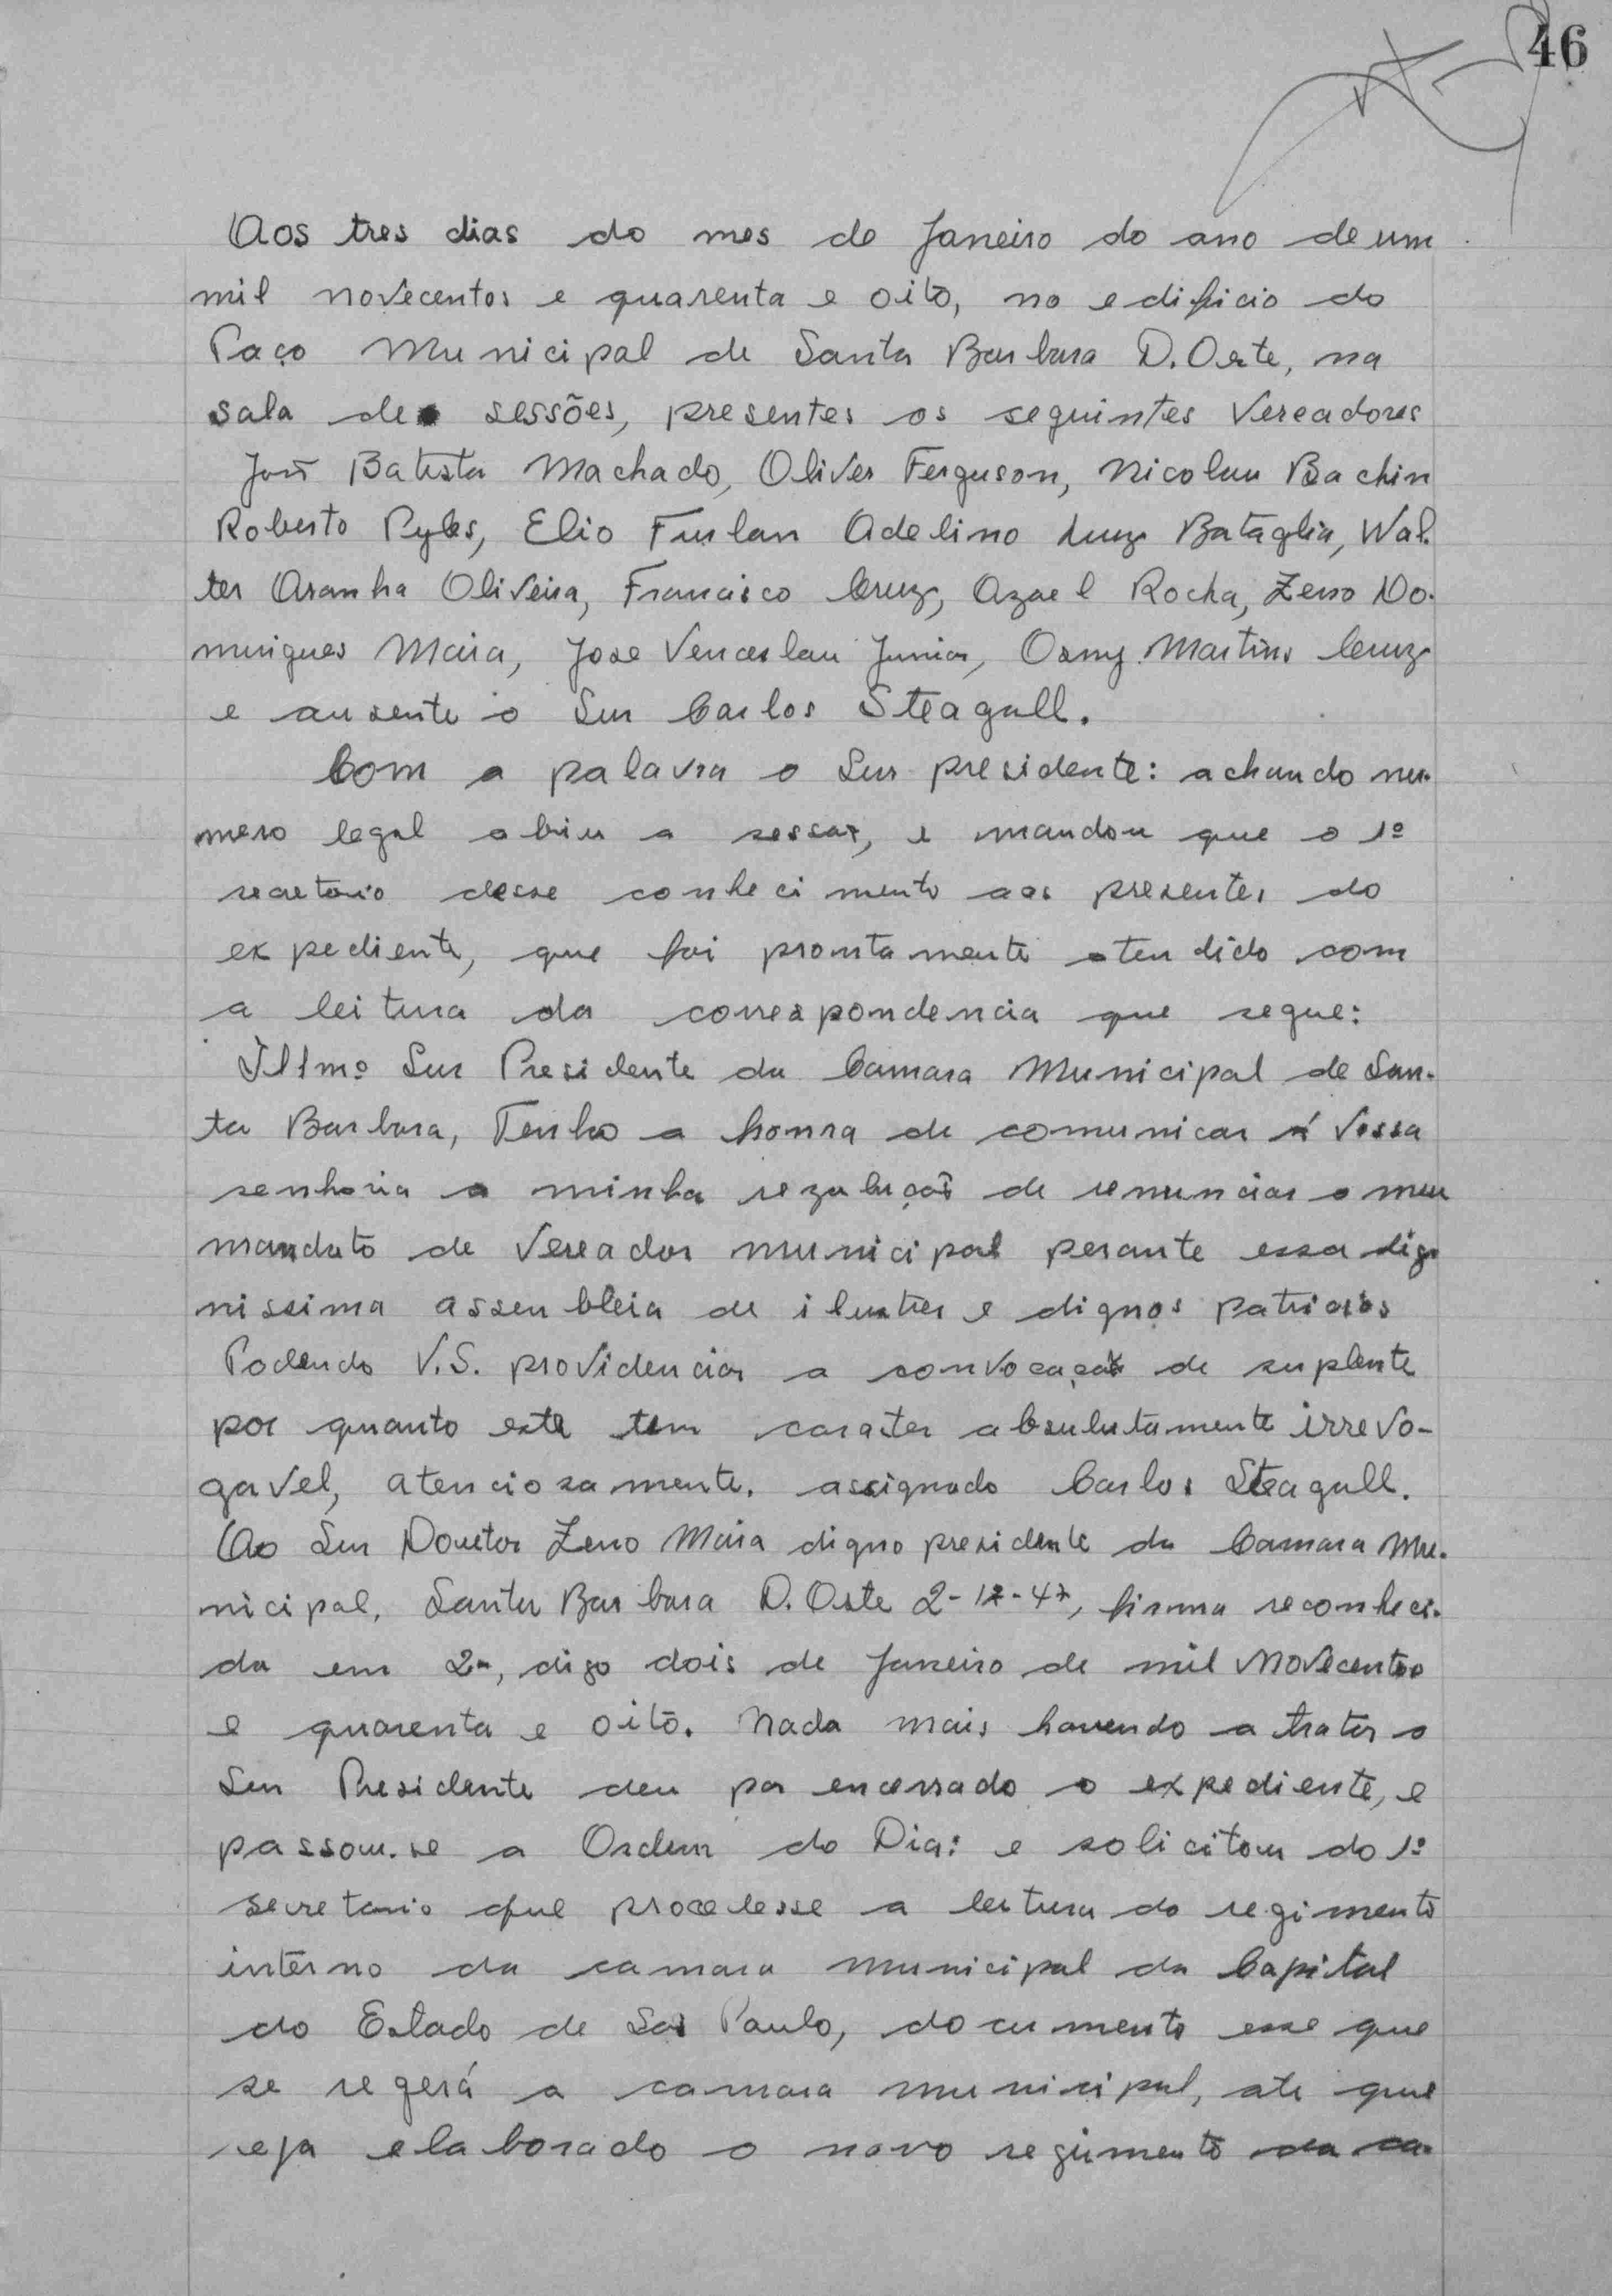 46
Aos tres dias do mes de Janeiro do ano de um
mil novecentos e quarenta e oito, no edificio do
Paço Municipal de Santa Barbara D. Oeste, na
sala de sessões, presentes os seguintes Vereadores
José Batista Machado, Oliver Ferguson, Nicolau Bachin
Roberto Pyles, Elio Furlan Adelino Luiz Bataglia, Wal-
ter Aranha Oliveira, Francisco Cruz, Azael Rocha, Zeno Do-
mingues Maia, Jose Venceslau Junior, Osmy Martins Cruz
e ausente o Snr Carlos Steagall.
Com a palavra o Snr presidente: achando nu-
mero legal abriu a sessaõ, e mandou que o 1º
secretario desse conhecimento aos presentes do
expediente, que foi prontamente atendido com
a leitura da correspondencia que segue:
Illmº Snr Presidente da Camara Municipal de San-
ta Barbara, Tenho a honra de comunicar á Vossa
senhoria a minha rezuluçaõ de renunciar o meu
mandato de Vereador municipal perante essa dig-
nissima assenbleia de ilustres e dignos patricios
Podendo V.S. providenciar a convocaçaõ de suplente
por quanto este tem carater absulutamente irrevo-
gavel, atenciozamente. assignado Carlos Steagall.
Ao Snr Douctor Zeno Maia digno presidente da Camara Mu-
nicipal, Santa Barbara D. Oste 2-12-47, firma reconheci-
da em 2-, digo dois de Janeiro de mil novecentos
e quarenta e oito. Nada mais havendo a tratar o
Snr Presidente deu por encerrado o expediente, e
passou-se a Ordem do Dia: e solicitou do 1º
secretario que procedesse a leitura do regimento
interno da camara municipal da Capital
do Estado de Saõ Paulo, documento esse que
se regerá a camara municipal, ate que
seja elaborado o novo regimento da ca-